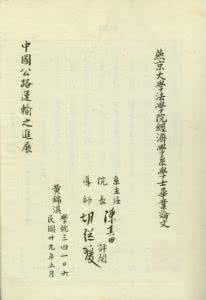 燕京大學法學院經濟學系學士畢業論文
中國公路運輸之進展
系主任
院長 陳其田 評閱
導師 胡繼瑗
黃錦滇
學號三四一〇六
民國廿九年五月